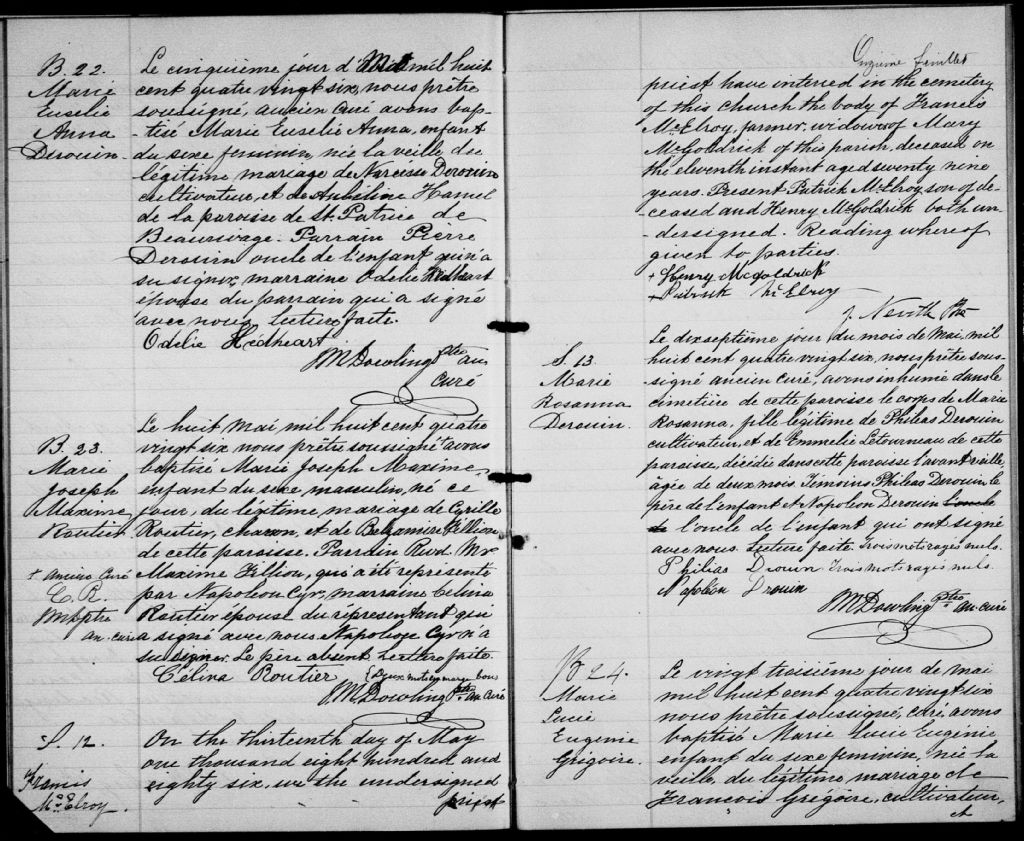 B. 22.
Marie
Euselie
Anna
Derouin.
Le cinquième jour d' Mai mil huit
cent quatre vingt six, nous prêtre
soussigné, ancien curé avons bap-
-tisé Marie Euselie Anna, enfant
du sexe feminin, née la veille du
légitime mariage de Narcisse Derouin
cultivateur, et de Aubéline Hamel
de la paroisse de St. Patrice de
Beaurivage. Parrain Pierre
Derouin oncle de l'enfant qui n'a
su signer, marraine Odelie Hedheart
épouse du parrain qui a signé
avec nous. Lecture faite.
Odelie Hedheart
J M Dowling Ptre an
curé
B. 23.
Marie
Joseph
Maxime
Routier
+ ancien Curé
C. R.
JMD ptre
an. curé
Le huit Mai mil huit cent quatre
vingt six nous prêtre soussigné + avons
baptisé Marie Joseph Maxime,
enfant du sexe masculin, né ce
jour, du légitime mariage de Cyrille
Routier, charon, et de Belzamire Fillion
de cette paroisse. Parrain Revd. Mr
Maxime Fillion, qui a été représenté
par Napoleon Cyr, marraine Celina
Routier épouse du répresentant qui
a signé avec nous. Napoleon Cyr n'a
su signer. Le père absent. Lecture faite.
Célina Routier (Deux mots en marge bons
J M Dowling Ptre an Curé
S. 12.
Francis
McElroy.
On the thirteenth day of May
one thousand eight hundred and
eighty six, we the undersigned
priest
Onzième feuillet
priest have interred in the cemetery
of this church the body of Francis
McElroy, farmer, widower of Mary
McGoldrick of this parish, deceased on
the eleventh instant aged seventy nine
years. Present Patrick McElroy son of de-
-ceased and Henry McGoldrick both un-
-dersigned. Reading whereof
given to parties.
+ Henry Mcgoldrick
+ Patrick McElroy
J. Neville Ptre
S. 13.
Marie
Rosanna
Derouin.
Le dixseptième jour du mois de Mai, mil
huit cent quatre vingt six, nous prêtre sous-
-signé ancien curé, avons inhumé dans le
cimetière de cette paroisse le corps de Marie
Rosanna, fille légitime de Philéas Derouin
cultivateur, et de Emmelie Létourneau de cette
paroisse, décédée dans cette paroisse l'avant veille,
âgée de deux mois. Témoins Philéas Derouin, le
père de l'enfant et Napoléon Derouin l'oncle
de l'oncle de l'enfant qui ont signé
avec nous. Lecture faite. Trois mots rayés nuls.
Philias Drouin Trois mots rayés nuls.
Napoléon Drouin
J M Dowling Ptre an. curé
B 24.
Marie
Lucie
Eugenie
Grégoire.
Le vingt troisième jour de mai
mil huit cent quatre vingt six
nous prêtre soussigné, curé, avons
baptisé Marie Lucie Eugenie
enfant du sexe feminin, née la
veille, du légitime mariage de
Francois Grégoire, cultivateur,
et